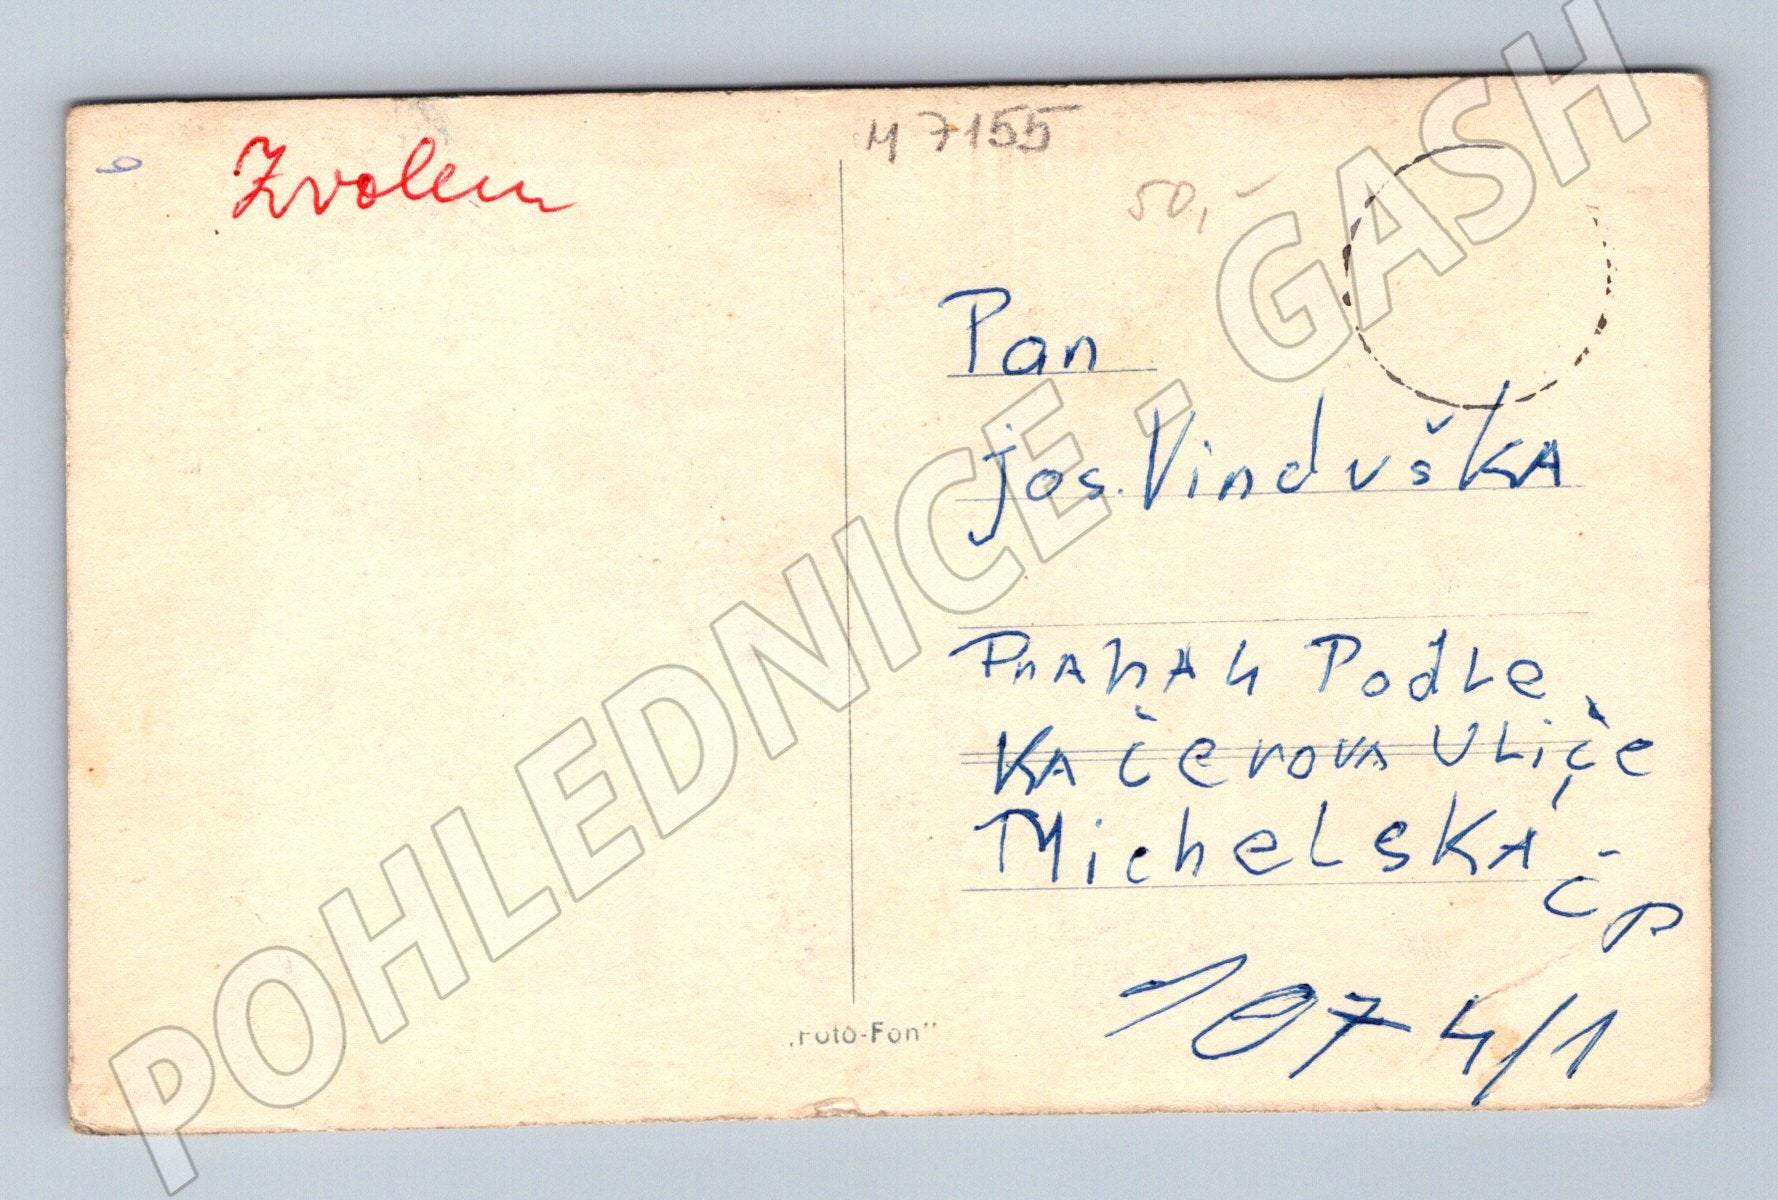 Zvolen
M 7155
50,-
Pan
Jos. Vinduška
PrAhA 4 PodLe
KAčerova ULiče
MicheLsKá čp
1074/1
„Foto-Fon"
POHLEDNICE - GASH